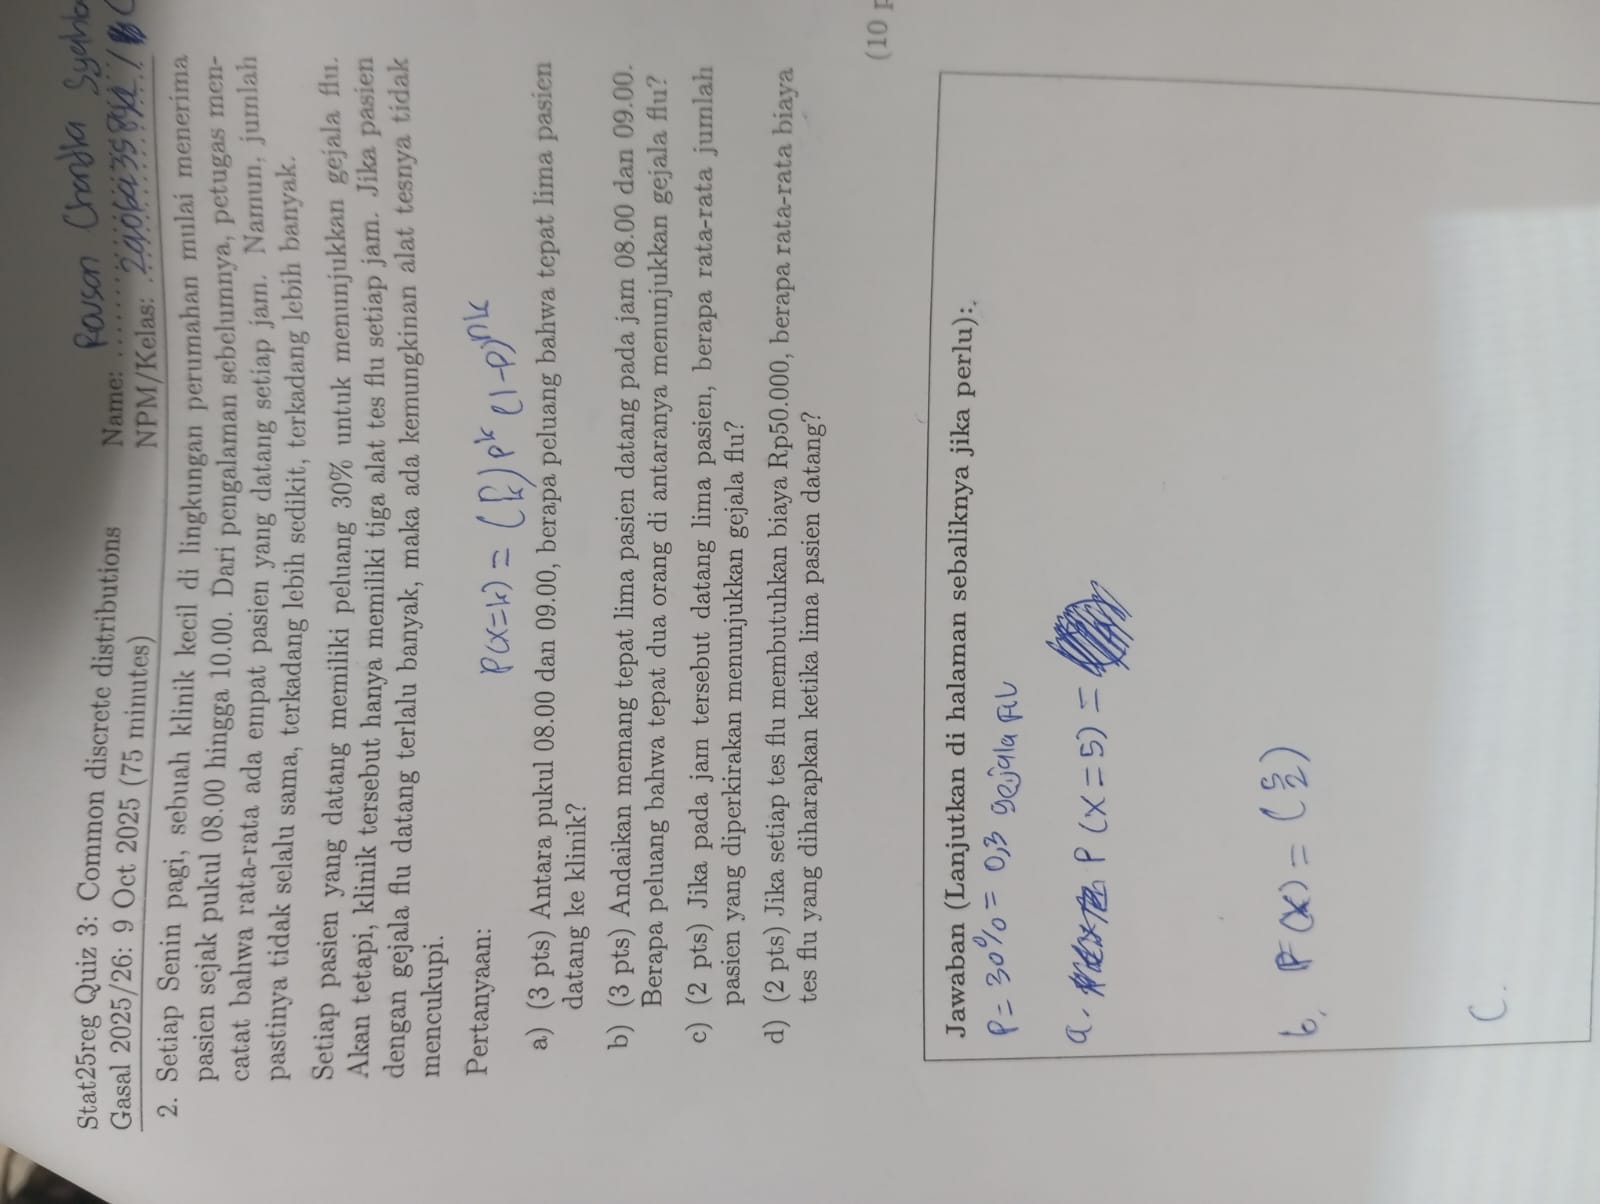 Stat25reg Quiz 3: Common discrete distributions
Gasal 2025/26: 9 Oct 2025 (75 minutes)
Name:
NPM/Kelas:
2. Setiap Senin pagi, sebuah klinik kecil di lingkungan perumahan mulai menerima
pasien sejak pukul 08.00 hingga 10.00. Dari pengalaman sebelumnya, petugas men-
catat bahwa rata-rata ada empat pasien yang datang setiap jam. Namun, jumlah
pastinya tidak selalu sama, terkadang lebih sedikit, terkadang lebih banyak.
Setiap pasien yang datang memiliki peluang 30% untuk menunjukkan gejala flu.
Akan tetapi, klinik tersebut hanya memiliki tiga alat tes flu setiap jam. Jika pasien
dengan gejala flu datang terlalu banyak, maka ada kemungkinan alat tesnya tidak
mencukupi.
Pertanyaan:
P(x=k) = (n k) p^k (1-p)^nk
a) (3 pts) Antara pukul 08.00 dan 09.00, berapa peluang bahwa tepat lima pasien
datang ke klinik?
b) (3 pts) Andaikan memang tepat lima pasien datang pada jam 08.00 dan 09.00.
Berapa peluang bahwa tepat dua orang di antaranya menunjukkan gejala flu?
c) (2 pts) Jika pada jam tersebut datang lima pasien, berapa rata-rata jumlah
pasien yang diperkirakan menunjukkan gejala flu?
d) (2 pts) Jika setiap tes flu membutuhkan biaya Rp50.000, berapa rata-rata biaya
tes flu yang diharapkan ketika lima pasien datang?
(10 p
Jawaban (Lanjutkan di halaman sebaliknya jika perlu):
P = 30% = 0,3 gejala
a. P (X = 5) =
b. (X) = (5 2)
C.